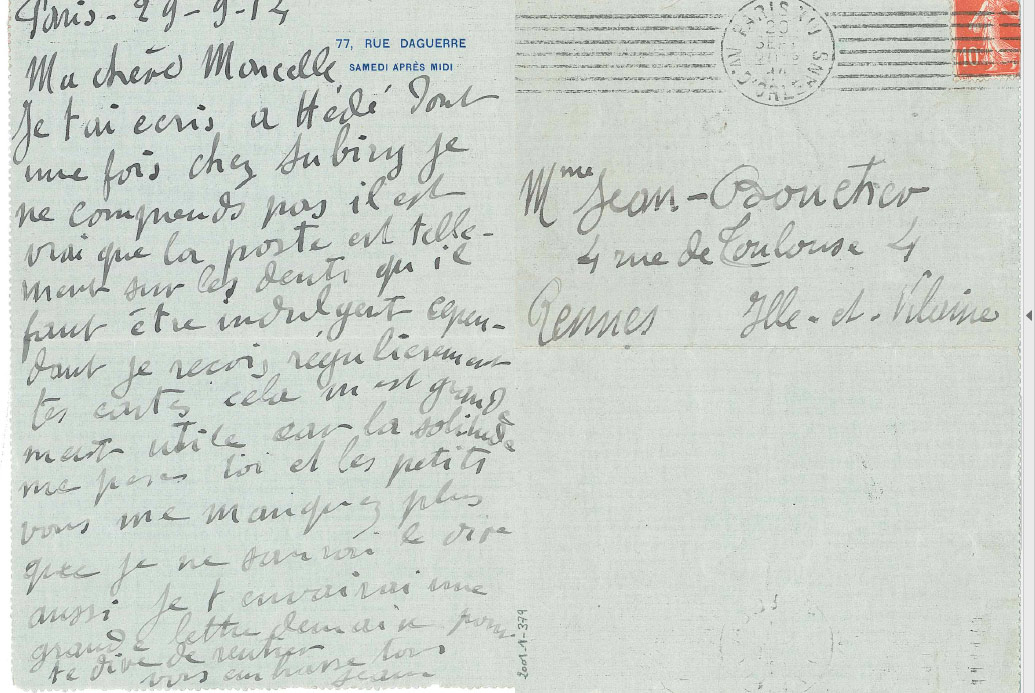 Paris - 29-9-14
77, RUE DAGUERRE
SAMEDI APRÈS MIDI
Ma chère Marcelle
Je t'ai ecris a Hédé dont
une fois chez Subiry je
ne comprends pas il est
vrai que la poste est telle-
ment sur les dents qu'il
faut être indulgent cepen-
dant je recois régulierement
tes cartes cela m'est grande
ment utile car la solitude
me pese toi et les petits
vous me manquez plus
que je ne saurai le dire
aussi je t'envairai une
grande lettre demain pour
te dire de rentrer
vous embrasse tous
Jean
PARIS XIV
AV. D'ORLEANS
10
Mme Jean-Boucher
4 rue de Toulouse 4
Rennes Ille-et-Vilaine
2001-1-379